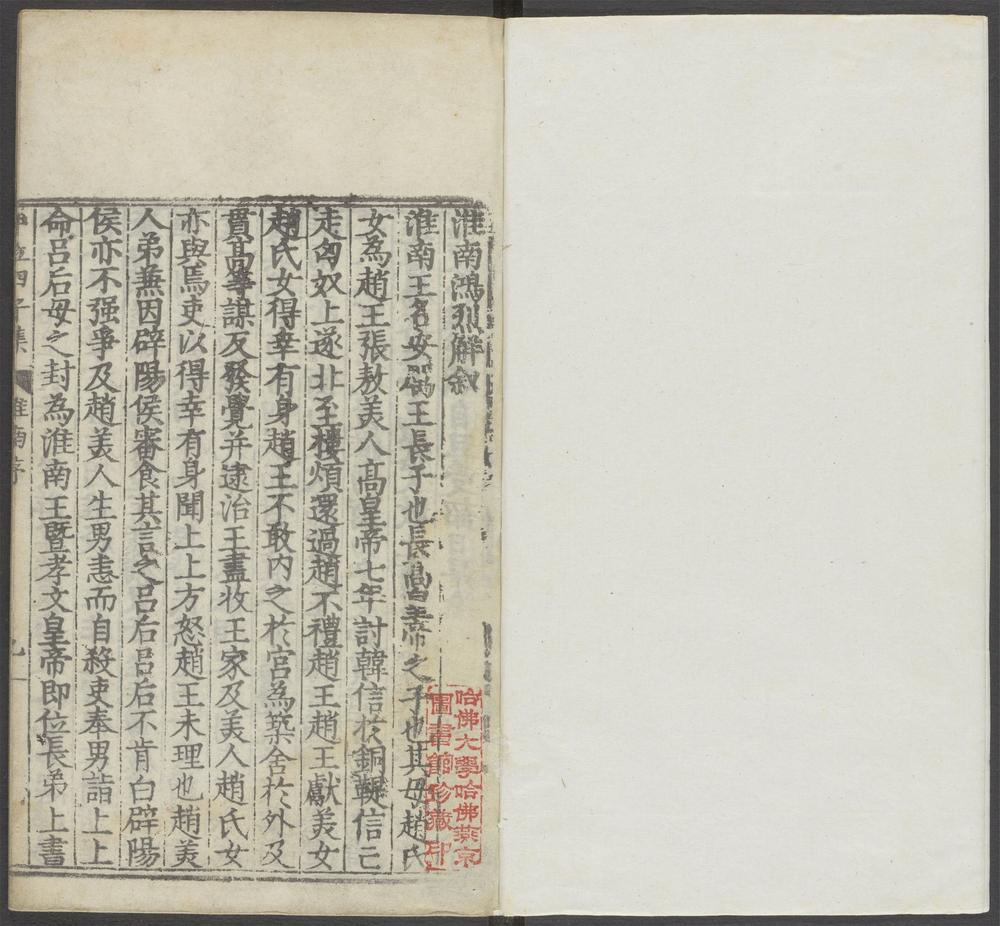 淮南鴻烈解叙
淮南王名安厲王長子也長高皇帝之子也其母趙氏
女為趙王張敖美人高皇帝七年討韓信於銅鞮信亡
走匈奴上遂北至樓煩還過趙不禮趙王趙王獻美女
趙氏女得幸有身趙王不敢内之於宫為築舍於外及
貫高等謀反發覺并逮治王盡收王家及美人趙氏女
亦與焉吏以得幸有身聞上上方怒趙王未理也趙美
人弟兼因辟陽侯審食其言之吕后吕后不肯白辟陽
侯亦不强爭及趙美人生男恚而自殺吏奉男詣上上
命吕后母之封為淮南王暨孝文皇帝即位長弟上書
四子集 淮南序
哈佛大學哈佛燕京
圖書館珍藏印